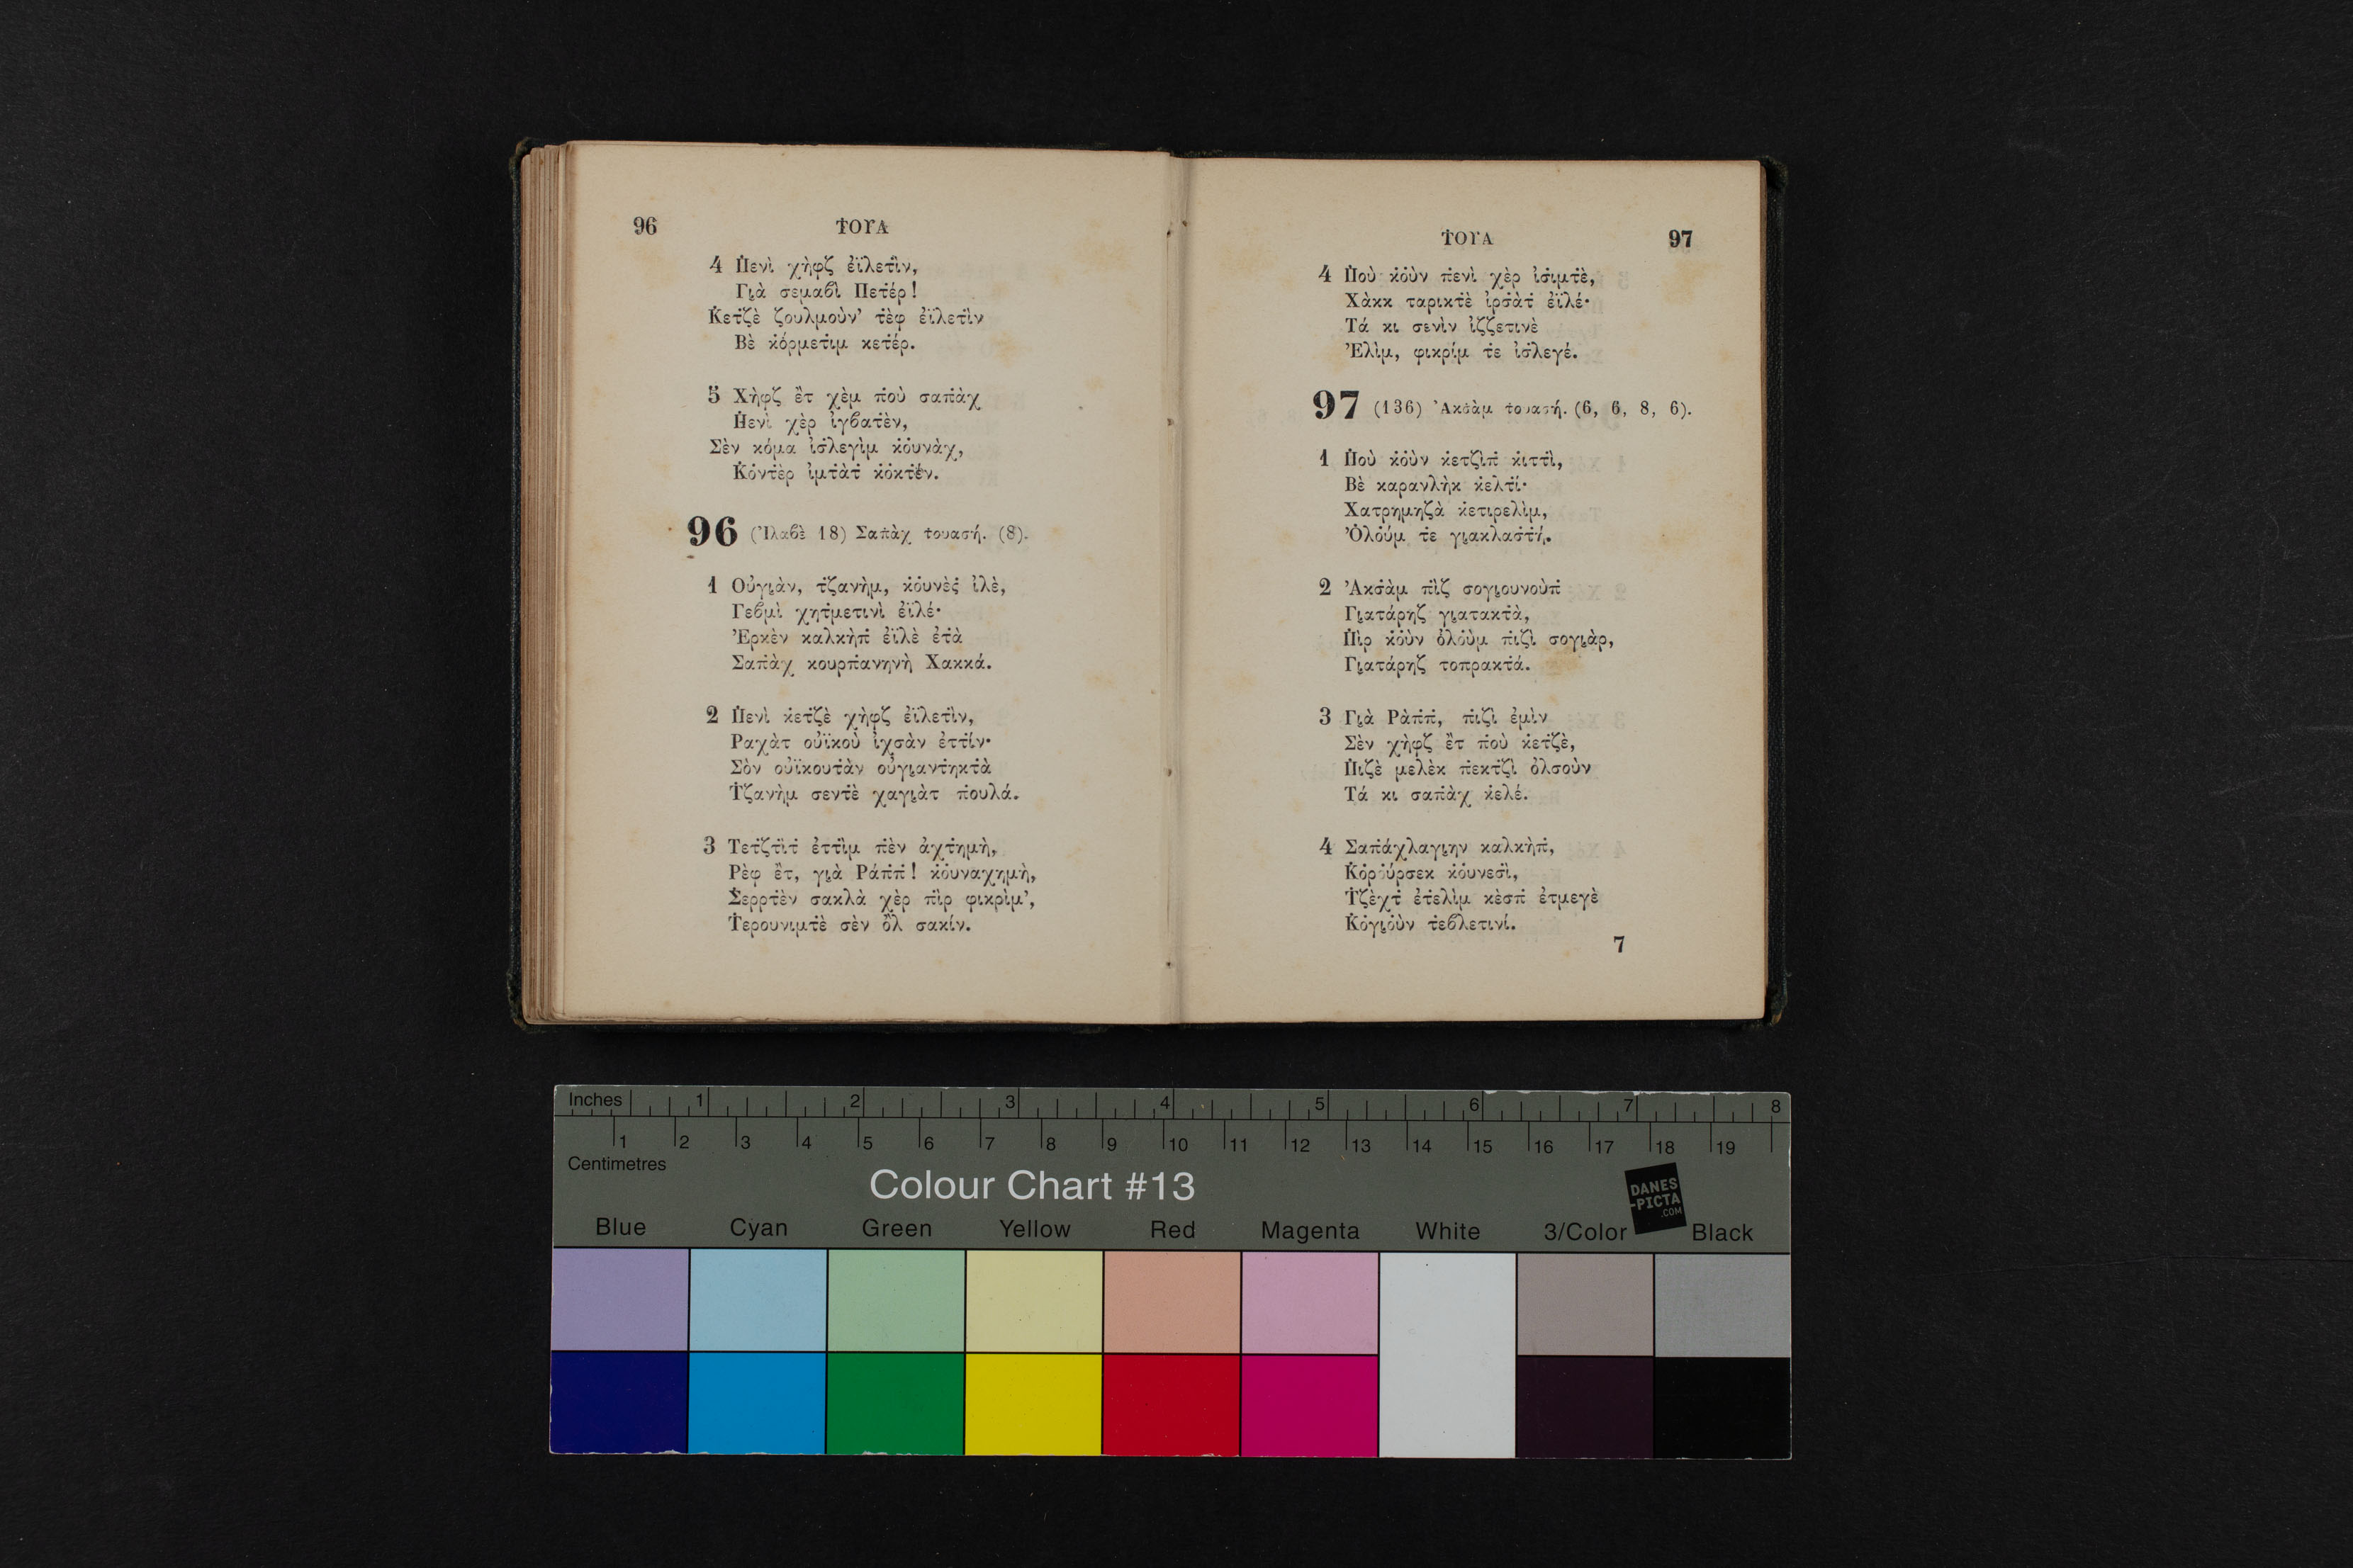 96
ṪΟΥΑ
4 Π̇ενὶ χὴφζ ἐϊλετ̇ὶν,
Γι̲ὰ σεμαβὶ Πετ̇έρ!
Κ̇ετ̇ζὲ ζουλμοὺν' τ̇ὲφ ἐϊλετ̇ὶν
Βὲ κ̇ό̇ρμετ̇ιμ κετ̇έρ.
5 Χὴφζ ἒτ χὲμ π̇οὺ σαπ̇ὰχ
Π̇ενὶ χὲρ ἰγβατ̇ὲν,
Σὲν κόμα ἰσ̇λεγὶμ κ̇ο̇υνὰχ,
Κ̇ό̇ντ̇ὲρ ἰμτ̇ὰτ̇ κ̇ο̇κτ̇έν.
96 (Ἰλαβὲ 18) Σαπ̇ὰχ τουασή. (8).
1 Οὐγι̲ὰν, τ̇ζανὴμ, κ̇ο̇υνὲς̇ ἰλὲ,
Γεβμὶ χητ̇μετινὶ ἐϊλέ·
Ἐρκὲν καλκὴπ̇ ἐϊλὲ ἐτ̇ὰ
Σαπ̇ὰχ κουρπ̇ανηνὴ Χακκά.
2 Π̇ενὶ κ̇ετ̇ζὲ χὴφζ ἐϊλετ̇ὶν,
Ραχὰτ οὐϊκοὺ ἰχσὰν ἐττ̇ίν·
Σὸν οὐϊκουτ̇ὰν οὐγι̲αντ̇ηκτ̇ὰ
Τ̇ζανὴμ σεντ̇ὲ χαγι̲ὰτ π̇ουλά.
3 Τετ̇ζτ̇ὶτ̇ ἐττ̇ὶμ π̇ὲν ἀχτ̇ημὴ,
Ρὲφ ἒτ, γι̲ὰ Ράπ̇π̇! κ̇ο̇υναχημὴ,
Σ̇ερρτ̇ὲν σακλὰ χὲρ π̇ὶρ φικρὶμ',
Τ̇ερουνιμτ̇ὲ σὲν ὂλ σακίν.
ṪΟΥΑ
97
4 Π̇οὺ κ̇ο̇ὺν π̇ενὶ χὲρ ἰσ̇ιμτ̇ὲ,
Χὰκκ ταρικτ̇ὲ ἰρσ̇ὰτ̇ ἐϊλέ·
Τά κι σενὶν ἰζζετινὲ
Ἐλὶμ, φικρίμ τ̇ε ἰσ̇λεγέ.
97 (136) Ἀκσ̇ὰμ τουασή. (6, 6, 8, 6).
1 Π̇οὺ κ̇ο̇ὺν κ̇ετζὶπ̇ κ̇ιττὶ,
Βὲ καρανλὴκ κ̇ελτ̇ί·
Χατρημηζὰ κ̇ετιρελὶμ,
Ὀ̇λο̇ύμ τ̇ε γι̲ακλασ̇τ̇ή.
2 Ἀκσ̇ὰμ π̇ὶζ σογι̲ουνοὺπ̇
Γι̲ατάρηζ γι̲ατακτ̇ὰ,
Π̇ὶρ κ̇ο̇ὺν ὀ̇λο̇ὺμ π̇ιζὶ σογι̲ὰρ,
Γι̲ατάρηζ τοπρακτ̇ά.
3 Γι̲ὰ Ρὰπ̇π̇, π̇ιζὶ ἐμὶν
Σὲν χὴφζ ἒτ π̇οὺ κ̇ετ̇ζὲ,
Π̇ιζὲ μελὲκ π̇εκτ̇ζὶ ὀλσοὺν
Τά κι σαπ̇ὰχ κ̇ελέ.
4 Σαπ̇άχλαγι̲ην καλκὴπ̇,
Κ̇ο̇ρο̇ύρσεκ κ̇ο̇υνεσ̇ὶ,
Τ̇ζὲχτ̇ ἐτ̇ελὶμ κὲσπ̇ ἐτμεγὲ
Κ̇ο̇γι̲ο̇ὺν τ̇εβλετινί.
7
Inches 1 2 3 4 5 6 7 8
1 2 3 4 5 6 7 8 9 10 11 12 13 14 15 16 17 18 19
Centimetres
Colour Chart #13
DANES
-PICTA
.COM
Blue Cyan Green Yellow Red Magenta White 3/Color Black